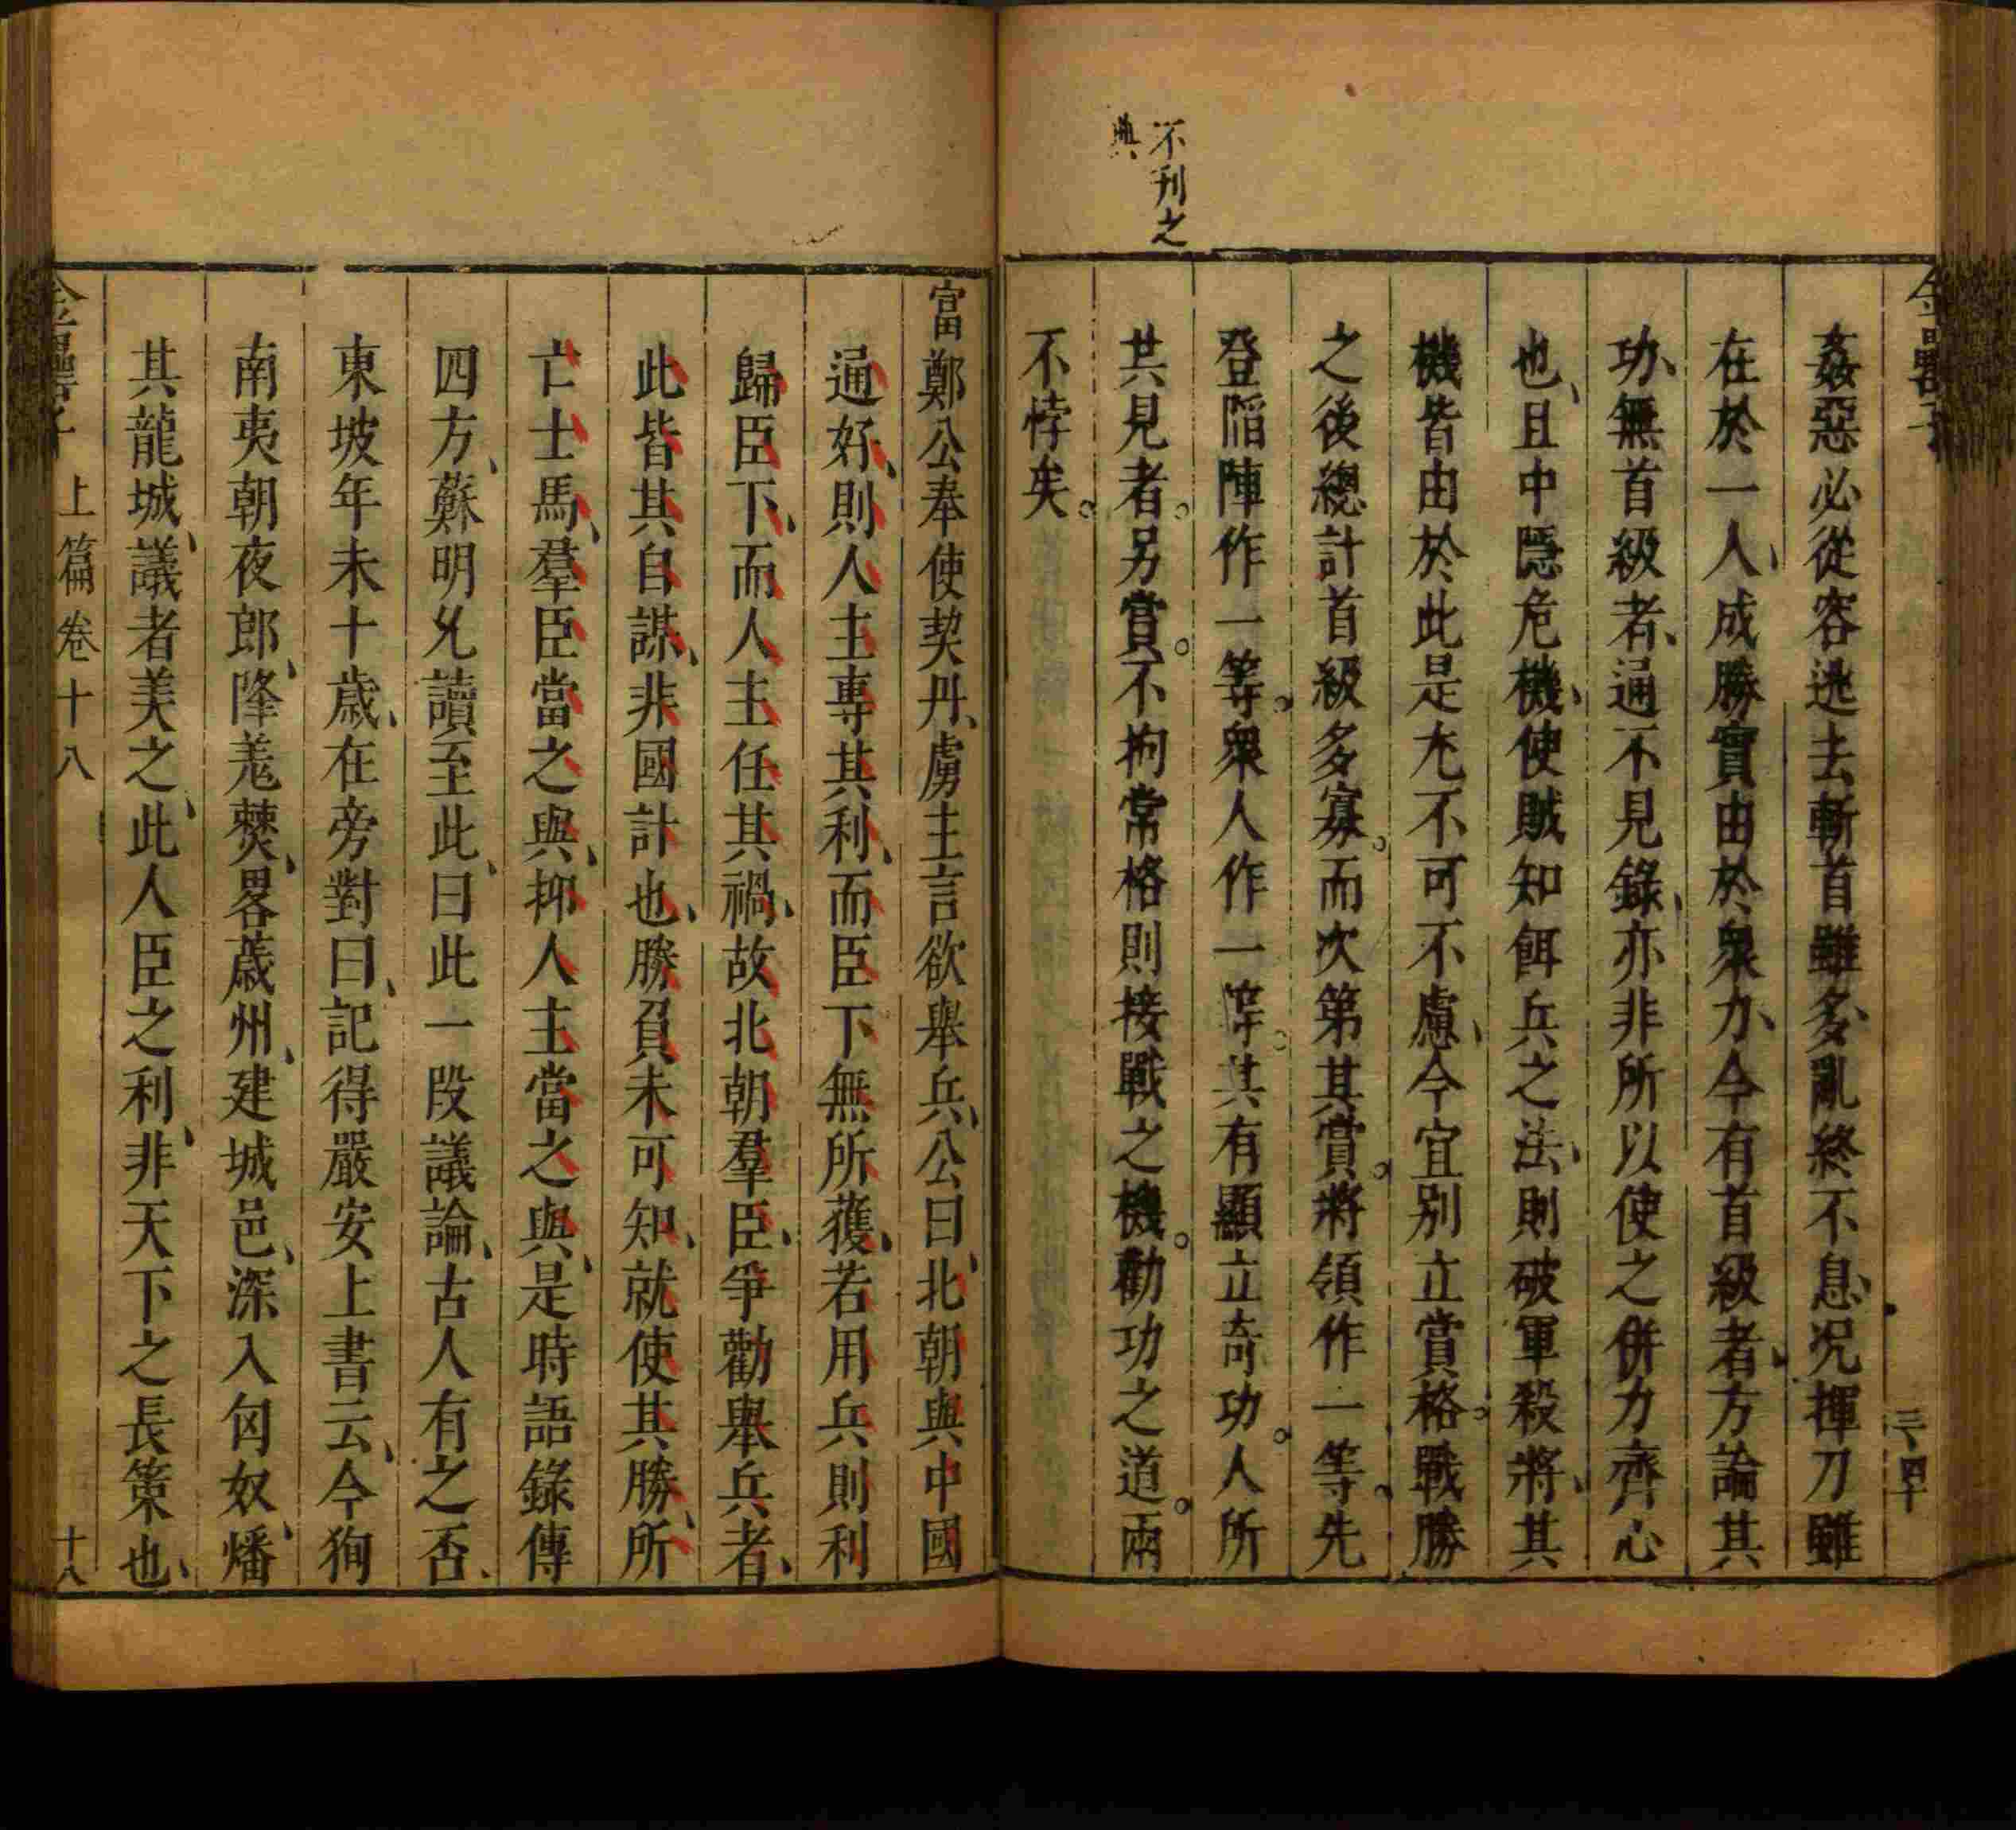 不刊之
典
姦惡必從容逃去斬首雖多、亂終不息、况揮刀雖
在於一人、成勝實由於衆力、今有首級者、方論其
功、無首級者、通不見錄、亦非所以使之併力齊心
也、且中隱危機、使賊知餌兵之法、則破軍殺將、其
機皆由於此是尤不可不慮、今宜别立賞格。戰勝
之後總計首級多寡。而次第其賞。將領作一等。先
登陷陣作一等。衆人作一等。其有顯立竒功。人所
共見者。另賞。不拘常格則接戰之機。勸功之道。兩
不悖矣。
富鄭公奉使契丹、虜主言欲舉兵、公曰、北朝與中國
通好、則人主專其利、而臣下無所獲、若用兵則利
歸臣下、而人主任其禍、故北朝羣臣、爭勸舉兵者、
此皆其自謀、非國計也、勝負未可知、就使其勝、所
亡士馬、羣臣當之與、抑人主當之與、是時語錄傳
四方、蘇明允讀至此、曰此一段議論、古人有之否、
東坡年未十歲、在旁對曰、記得嚴安上書云、今狥
南夷朝夜郎、降羗僰、畧薉州、建城邑、深入匈奴、燔
其龍城、議者美之、此人臣之利、非天下之長策也、
上篇卷十八
十八